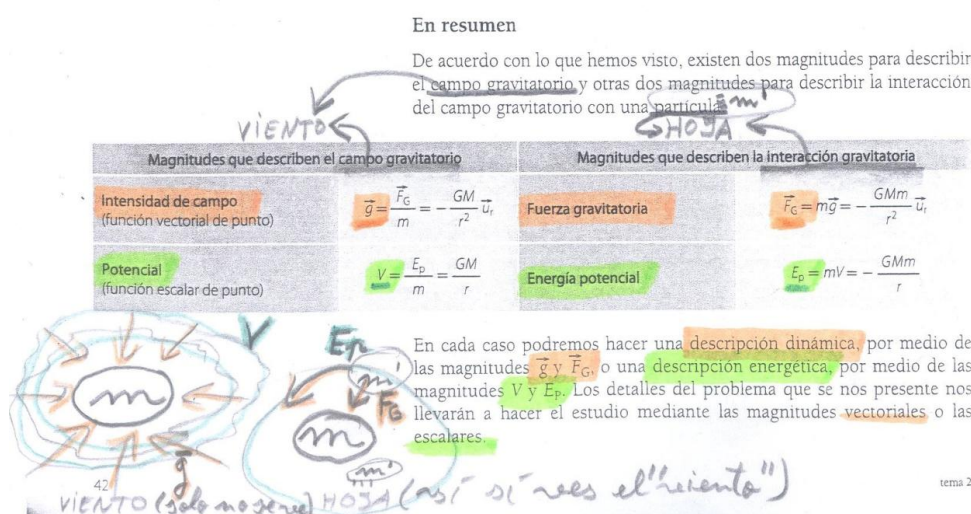 En resumen
De acuerdo con lo que hemos visto, existen dos magnitudes para describir
el campo gravitatorio y otras dos magnitudes para describir la interacción
del campo gravitatorio con una partícula m'
VIENTO HOJA
Magnitudes que describen el campo gravitatorio Magnitudes que describen la interacción gravitatoria
Intensidad de campo
(función vectorial de punto)
g⃗ = F⃗_G/m = − GM/r² u⃗_r
Fuerza gravitatoria
F⃗_G = mg⃗ = − GMm/r² u⃗_r
Potencial
(función escalar de punto)
V = E_p/m = GM/r
Energía potencial
E_p = mV = − GMm/r
V
m
g⃗
Ep
m'
F_G
m
m'
En cada caso podremos hacer una descripción dinámica, por medio de
las magnitudes g⃗ y F⃗_G, o una descripción energética, por medio de las
magnitudes V y E_P. Los detalles del problema que se nos presente nos
llevarán a hacer el estudio mediante las magnitudes vectoriales o las
escalares.
42
tema 2
VIENTO (solo no se ve) HOJA (así sí ves el "viento")